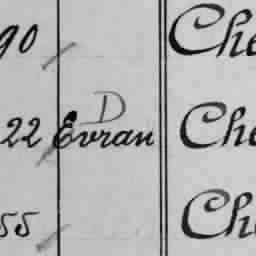 90 Che
D
22 Evran Che
55 Che